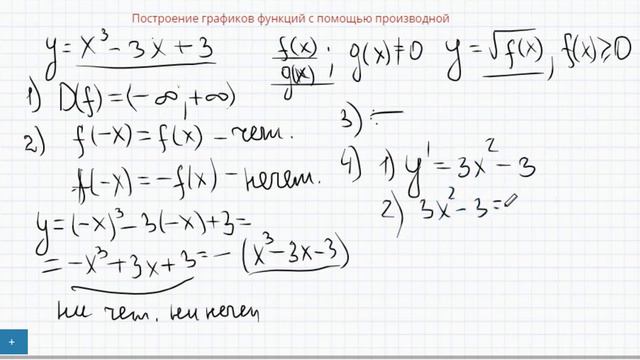 Построение графиков функций с помощью производной
y = x³ - 3x + 3
f(x)/g(x) ; g(x) ≠ 0
y = √f(x), f(x) ≥ 0
1) D(f) = (-∞, +∞)
2) f(-x) = f(x) - чет.
f(-x) = -f(x) - нечет.
y = (-x)³ - 3(-x) + 3 =
= -x³ + 3x + 3 = - (x³ - 3x - 3)
ни чет. ни нечет
3) -
4) 1) y' = 3x² - 3
2) 3x² - 3 =
+